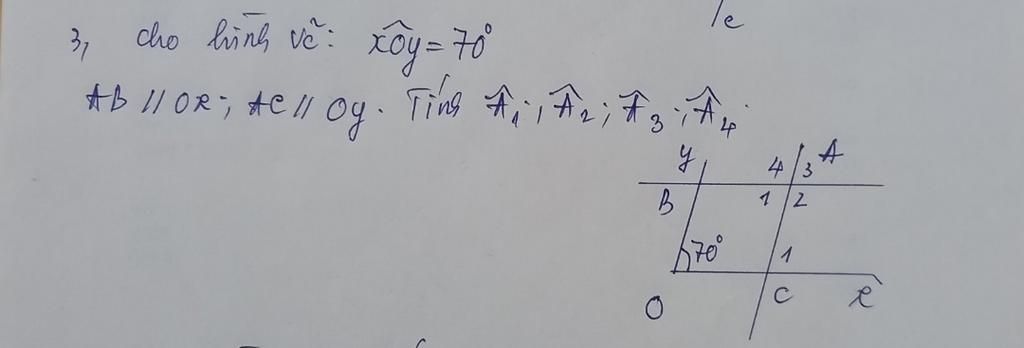 1e
3, cho hình vẽ: xÔy = 70°
AB // Ox; AC // Oy. Tính Â1; Â2; Â3; Â4.
y 4 3 A
B 1 2
70° 1
O C x